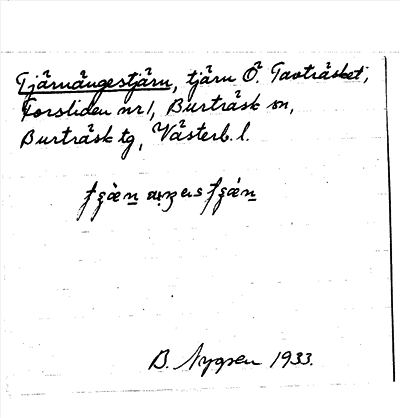 Tjärnängestjärn, tjärn Ö. Tavträsket,
Forsliden nr 1, Burträsk sn,
Burträsk tg, Västerb. l.
B. Nygren 1933.